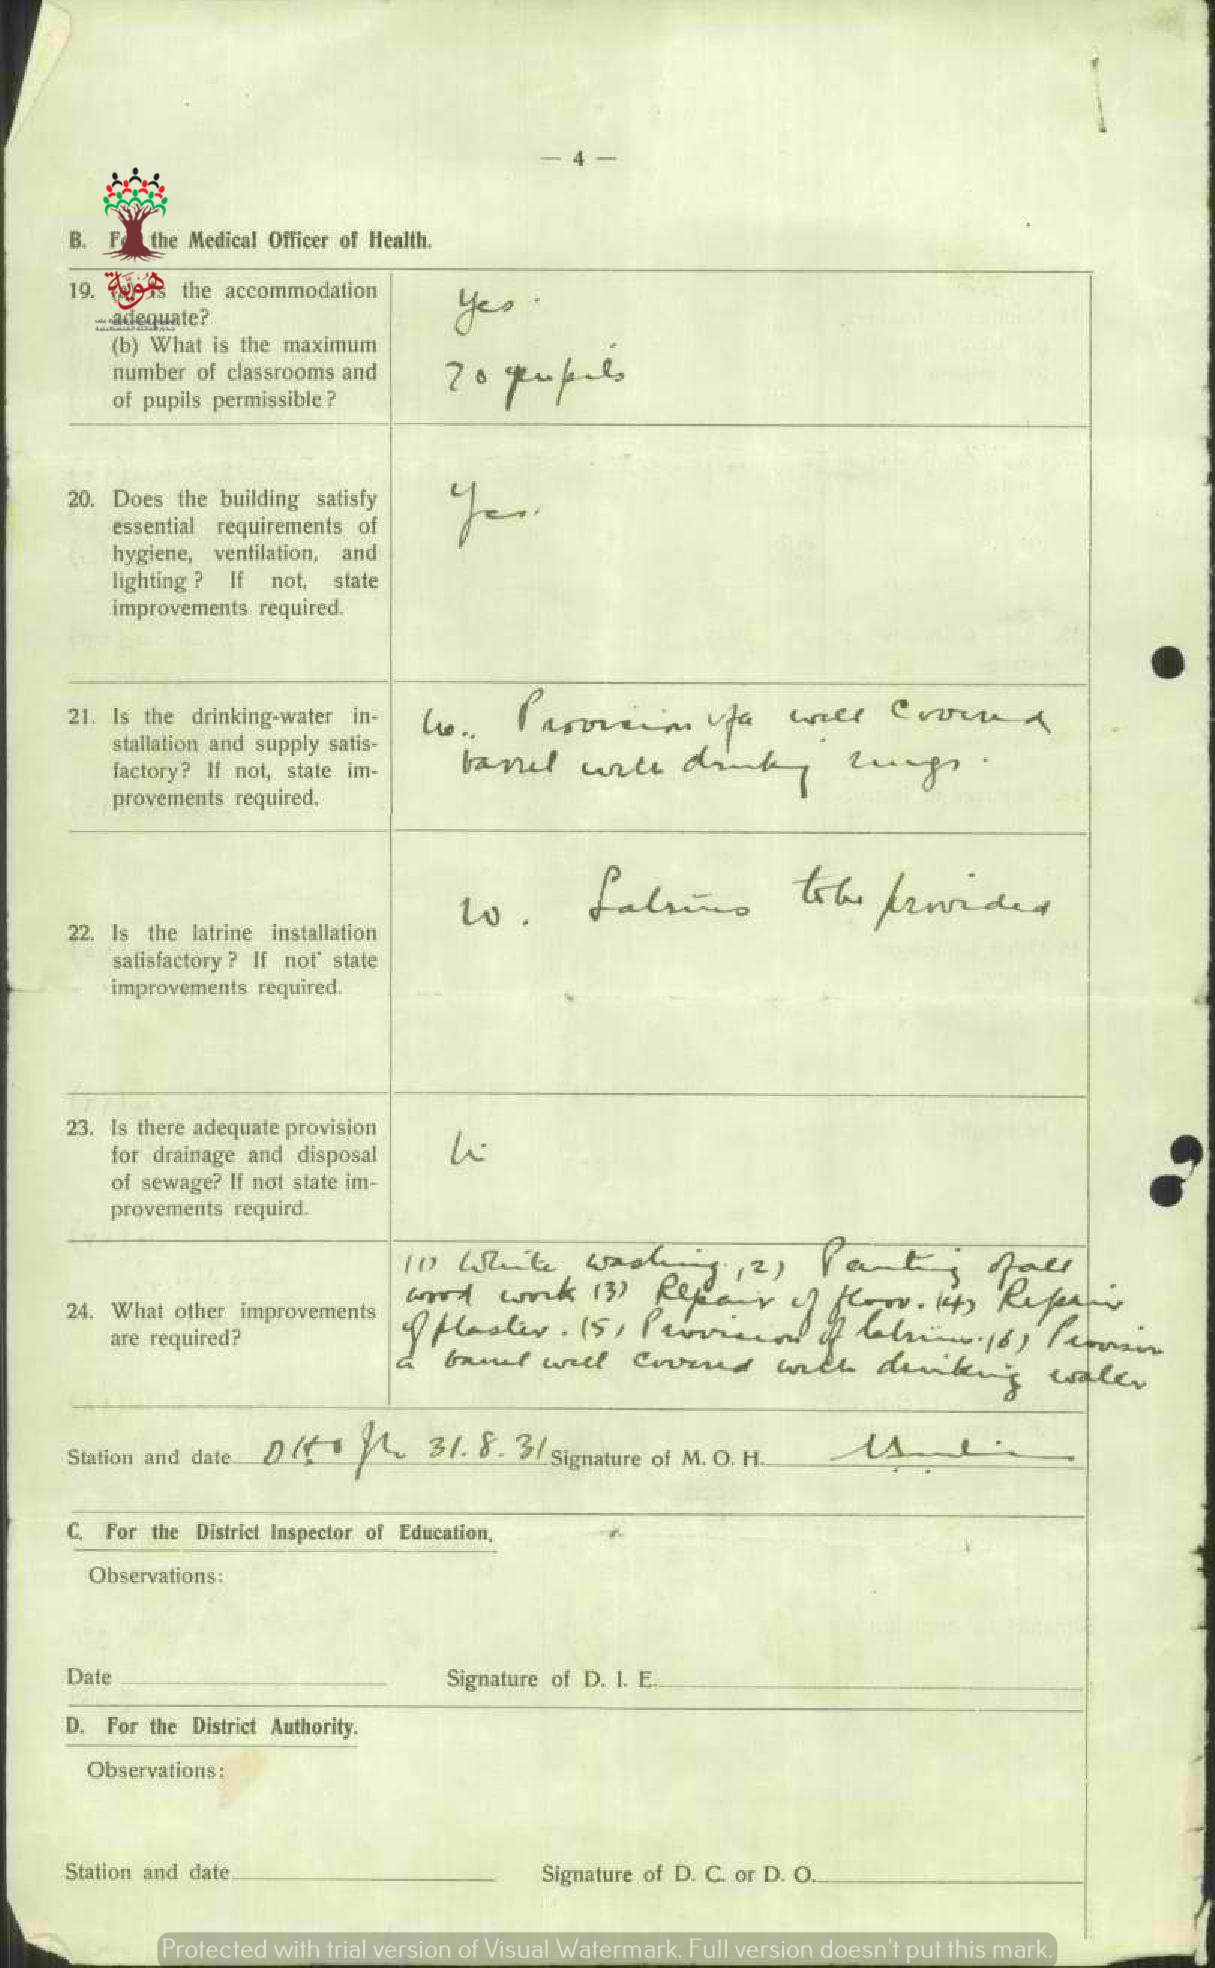 — 4 —
B. For the Medical Officer of Health.
هوية
19. Is the accommodation
adequate?
Yes.
(b) What is the maximum
number of classrooms and
of pupils permissible?
70 pupils
20. Does the building satisfy
essential requirements of
hygiene, ventilation, and
lighting? If not, state
improvements required.
Yes.
21. Is the drinking-water in-
stallation and supply satis-
factory? If not, state im-
provements required.
No.. Provision of a well covered
barrel with drinking mugs.
22. Is the latrine installation
satisfactory? If not state
improvements required.
No. Latrins to be provided
23. Is there adequate provision
for drainage and disposal
of sewage? If not state im-
provements requird.
24. What other improvements
are required?
(1) White washing. (2) Painting of all
wood work (3) Repair of floor. (4) Repair
of plaster. (5) Provision of latrines. (6) Provision
a barrel well covered with drinking water
Station and date 31.8.31 Signature of M. O. H.
C. For the District Inspector of Education.
Observations:
Date Signature of D. I. E.
D. For the District Authority.
Observations:
Station and date Signature of D. C. or D. O.
Protected with trial version of Visual Watermark. Full version doesn't put this mark.